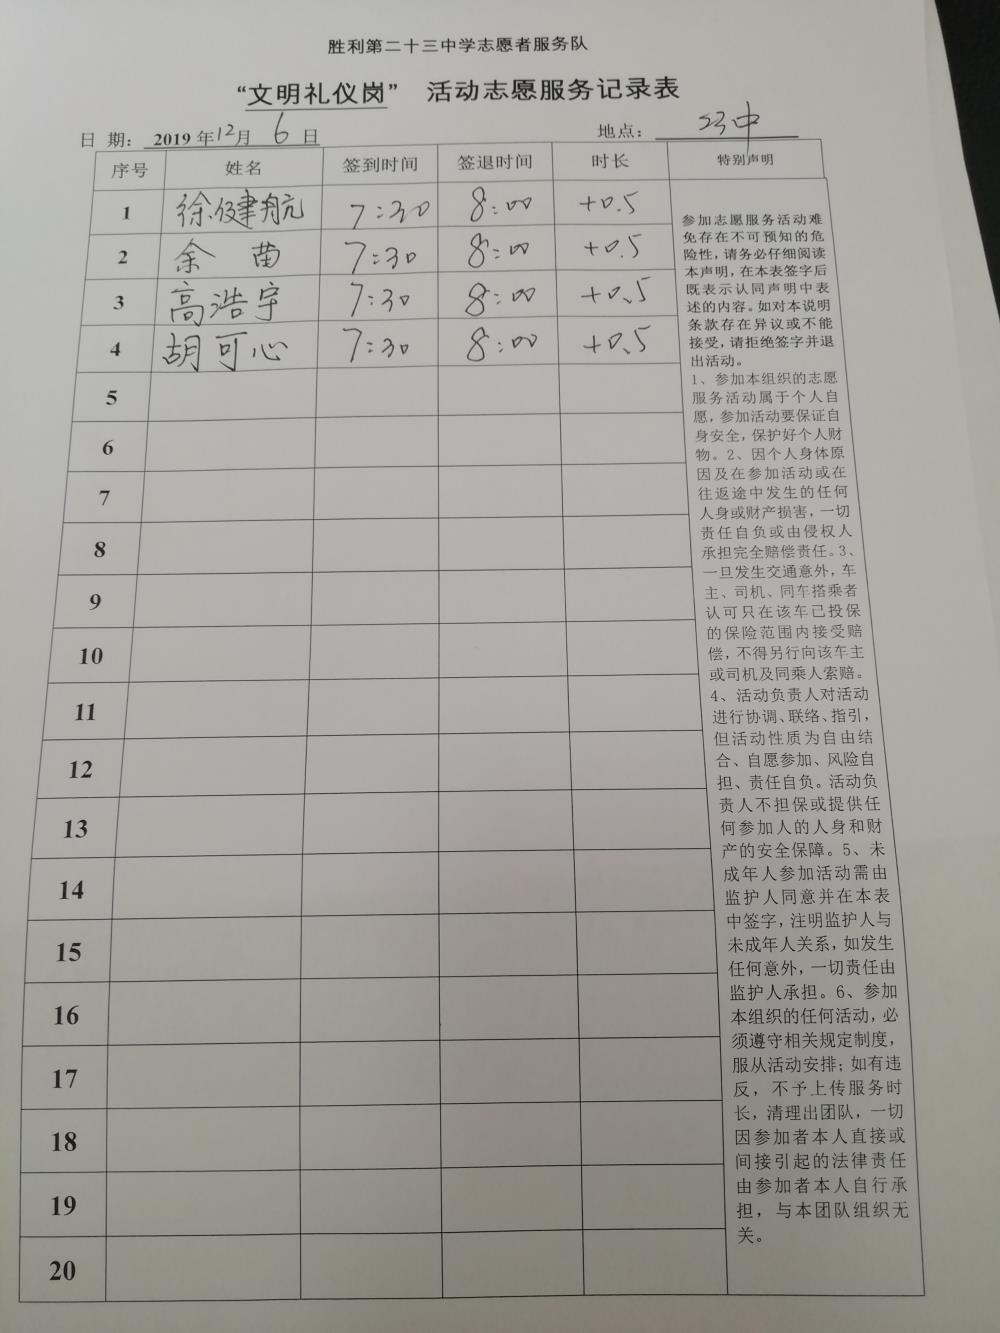 胜利第二十三中学志愿者服务队
“文明礼仪岗” 活动志愿服务记录表
日 期: 2019 年12月 6 日 地点: 23中
序号 姓名 签到时间 签退时间 时长 特别声明
1 徐健航 7:30 8:00 +0.5
2 余 苗 7:30 8:00 +0.5
3 高浩宇 7:30 8:00 +0.5
4 胡可心 7:30 8:00 +0.5
5
6
7
8
9
10
11
12
13
14
15
16
17
18
19
20
参加志愿服务活动难
免存在不可预知的危
险性，请务必仔细阅读
本声明，在本表签字后
既表示认同声明中表
述的内容。如对本说明
条款存在异议或不能
接受，请拒绝签字并退
出活动。
1、参加本组织的志愿
服务活动属于个人自
愿，参加活动要保证自
身安全，保护好个人财
物。2、因个人身体原
因及在参加活动或在
往返途中发生的任何
人身或财产损害，一切
责任自负或由侵权人
承担完全赔偿责任。3、
一旦发生交通意外，车
主、司机、同车搭乘者
认可只在该车已投保
的保险范围内接受赔
偿，不得另行向该车主
或司机及同乘人索赔。
4、活动负责人对活动
进行协调、联络、指引，
但活动性质为自由结
合、自愿参加、风险自
担、责任自负。活动负
责人不担保或提供任
何参加人的人身和财
产的安全保障。5、未
成年人参加活动需由
监护人同意并在本表
中签字，注明监护人与
未成年人关系，如发生
任何意外，一切责任由
监护人承担。6、参加
本组织的任何活动，必
须遵守相关规定制度，
服从活动安排；如有违
反，不予上传服务时
长，清理出团队，一切
因参加者本人直接或
间接引起的法律责任
由参加者本人自行承
担，与本团队组织无
关。